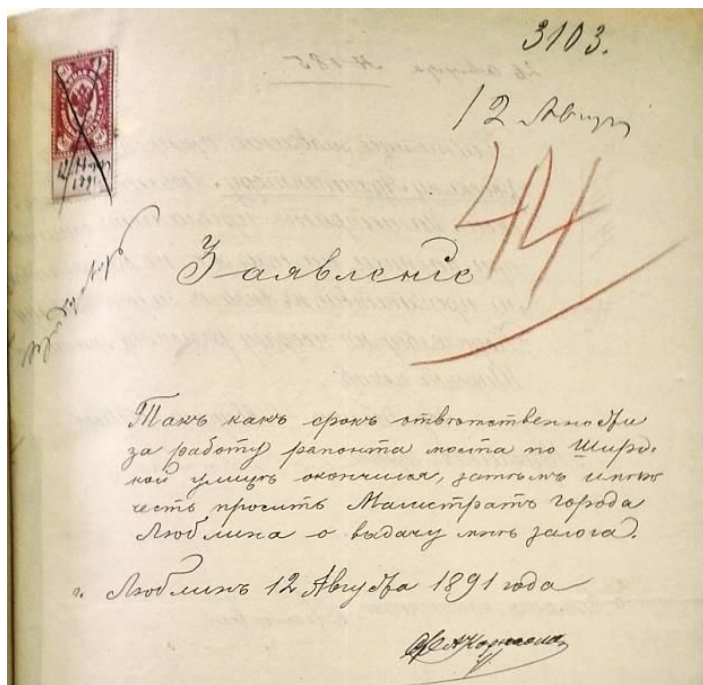 3103.
12 Авгус
44
Заявленіе
Такъ какъ срокъ отвѣтственности
за работу ремонта моста по Широ-
кой улицѣ окончился, затѣмъ имѣю
честь просить Магистратъ города
Люблина о выдачу мнѣ залога.
г. Люблинъ 12 Августа 1891 года